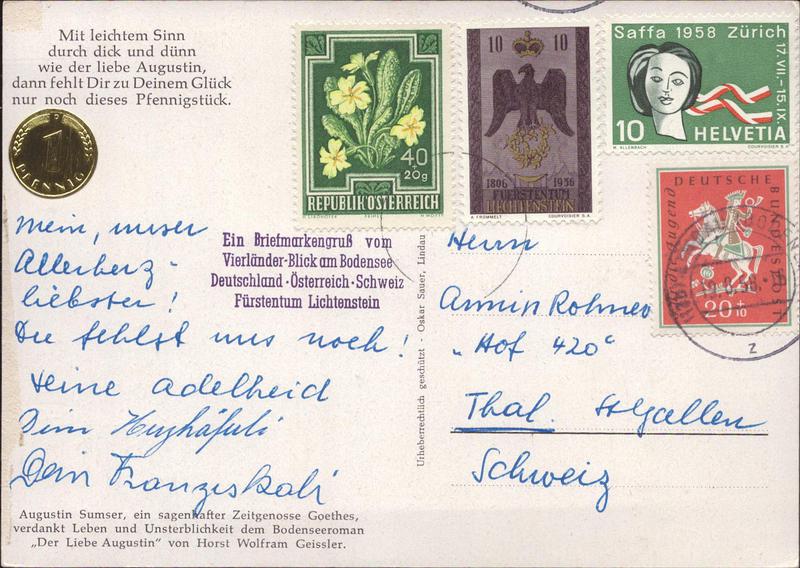 Mit leichtem Sinn
durch dick und dünn
wie der liebe Augustin,
dann fehlt Dir zu Deinem Glück
nur noch dieses Pfennigstück.
1
PFENNIG
40
+
20g
REPUBLIK ÖSTERREICH
10 10
1806 1956
FUERSTENTUM
LIECHTENSTEIN
A. FROMMELT COURVOISIER S.A.
Saffa 1958 Zürich
17.VII.-15.IX.
10 HELVETIA
COURVOISIER S.A.
DEUTSCHE
BUNDESPOST
Jugend
20+10
z
Ein Briefmarkengruß vom
Vierländer-Blick am Bodensee
Deutschland·Österreich·Schweiz
Fürstentum Lichtenstein
Mein, unser
Allerherz-
liebster!
Du fehlst uns noch!
Deine Adelheid
Dein
Dein Franziskali
Urheberrechtlich geschützt - Oskar Sauer, Lindau
Herrn
Armin Rohner
„Hof 420“
Thal. St Gallen
Schweiz
Augustin Sumser, ein sagenhafter Zeitgenosse Goethes,
verdankt Leben und Unsterblichkeit dem Bodenseeroman
„Der Liebe Augustin“ von Horst Wolfram Geissler.